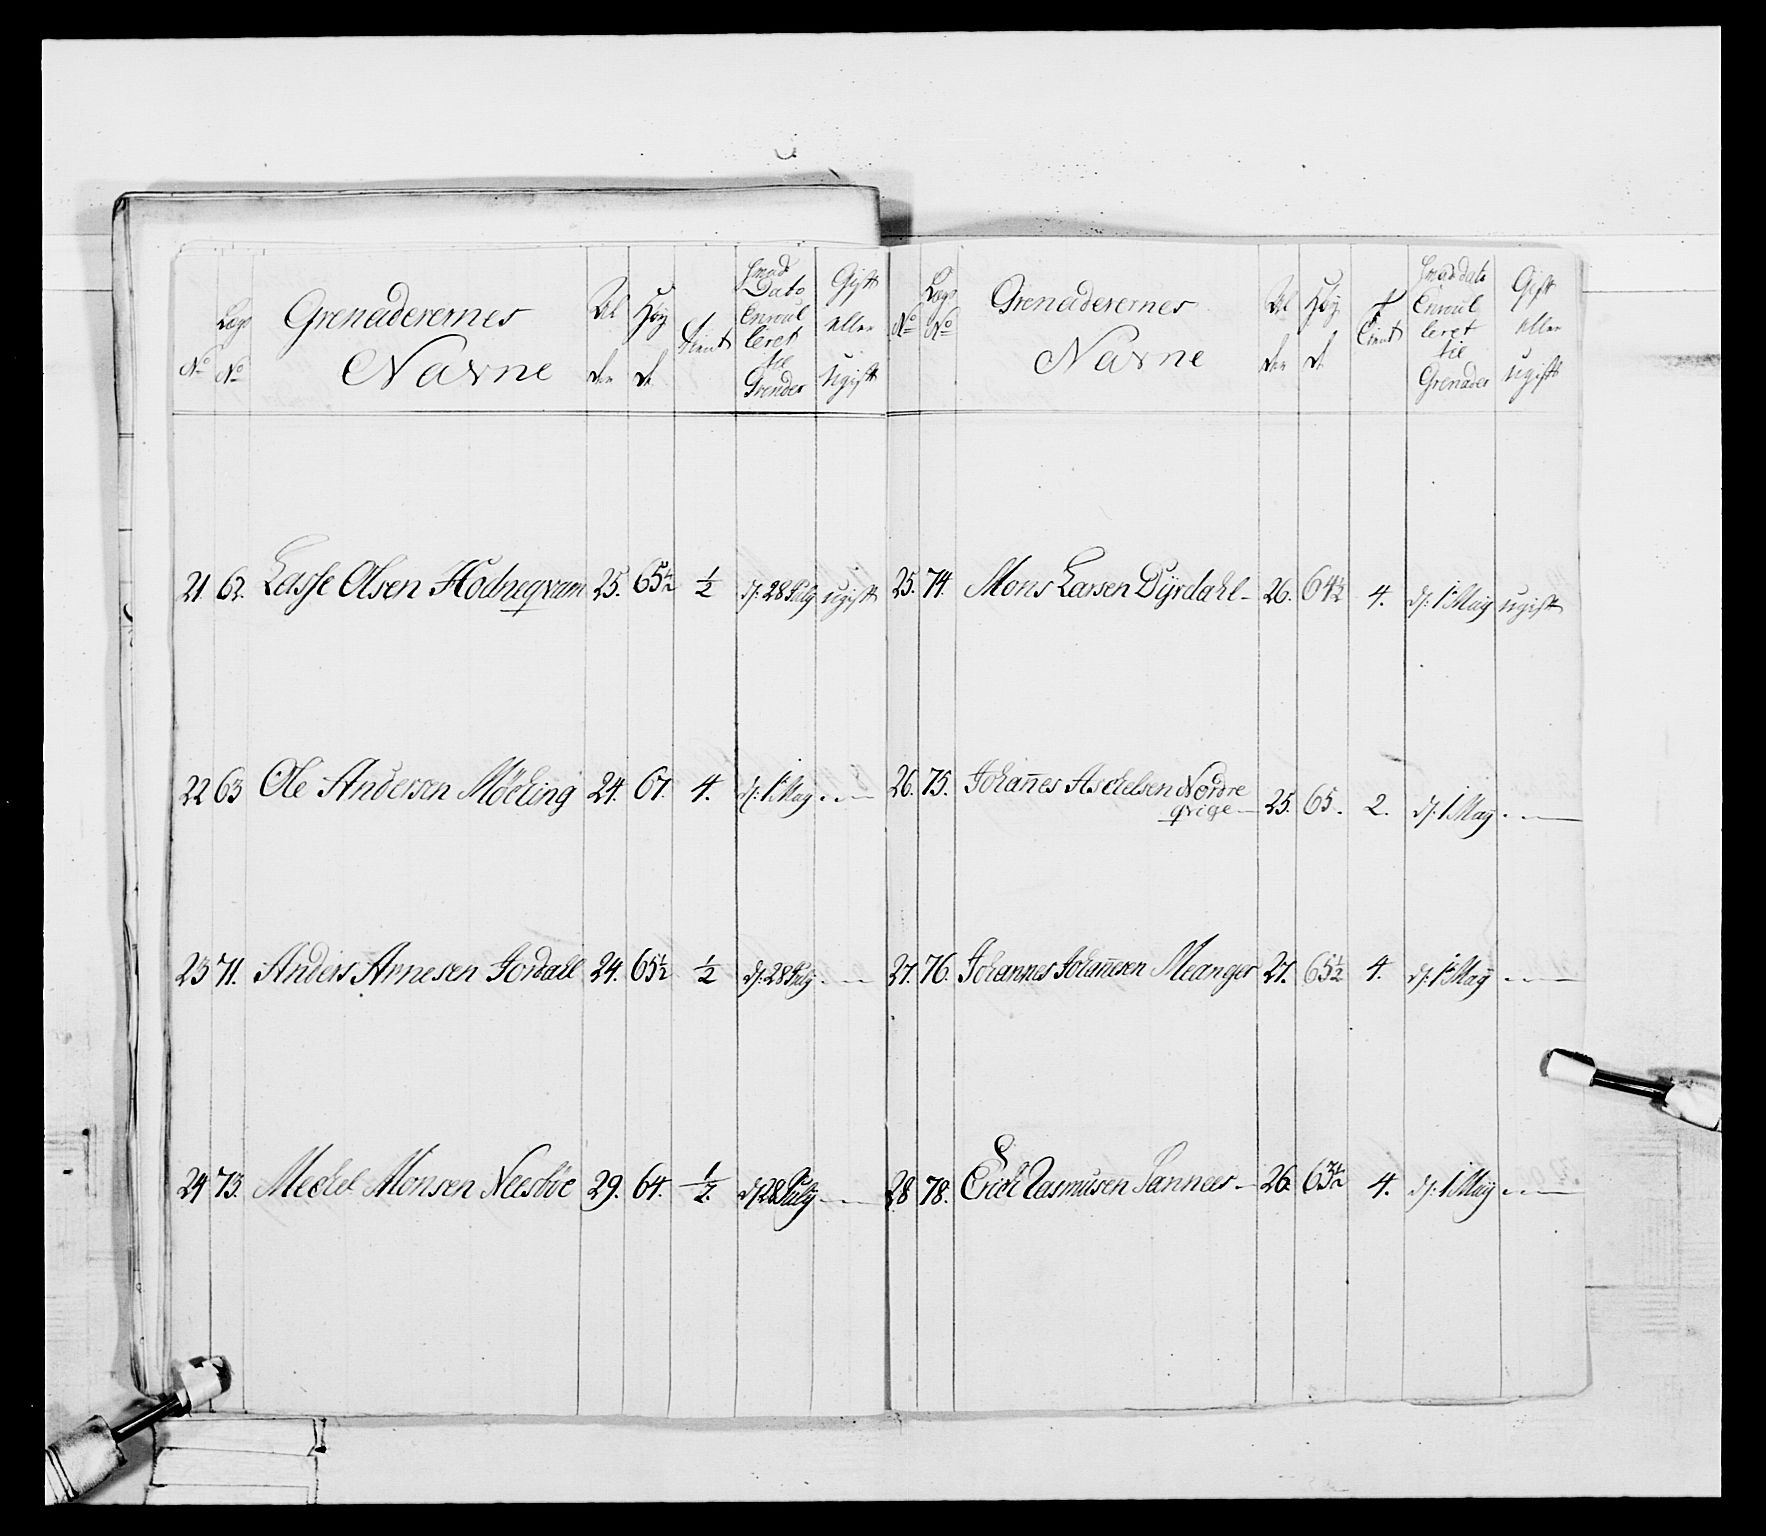 No
Lægs No
Grenaderernes Navne
Al der
Høy de
Tienst
hvad Dato Enroul leret til Grenader
Gift eller Ugift
21. 62. Lasse Olsen Hodneqvam 25. 65½ ½ d: 28 July ugift
22 63 Ole Andersen Møcking 24. 67. 4. d: 1 May . . —
23 71. Anders Arnesen Jordall 24. 65½ ½ d: 28 July . . —
24 73. Meckel Monsen Neesbøe 29. 64. ½. d: 28 July . . —
No
Lægs No
Grenaderernes Navne
Al der
Høy de
Tienst
hvad dato Enroul leret til Grenader
Gift eller ugift
25. 74. Mons Larsen Dyrdahl — 26. 64½ 4. d: 1 May ugift
26. 75. Johannes Aschelsen Nordre
qvige — 25. 65. 2. d: 1 May . . —
27. 76. Johannes Johannesen Meanger 27. 65½ 4. d: 1 May . . —
28 78. Erich Rasmusen Sannees — 26. 63½ 4. d: 1 May . . —